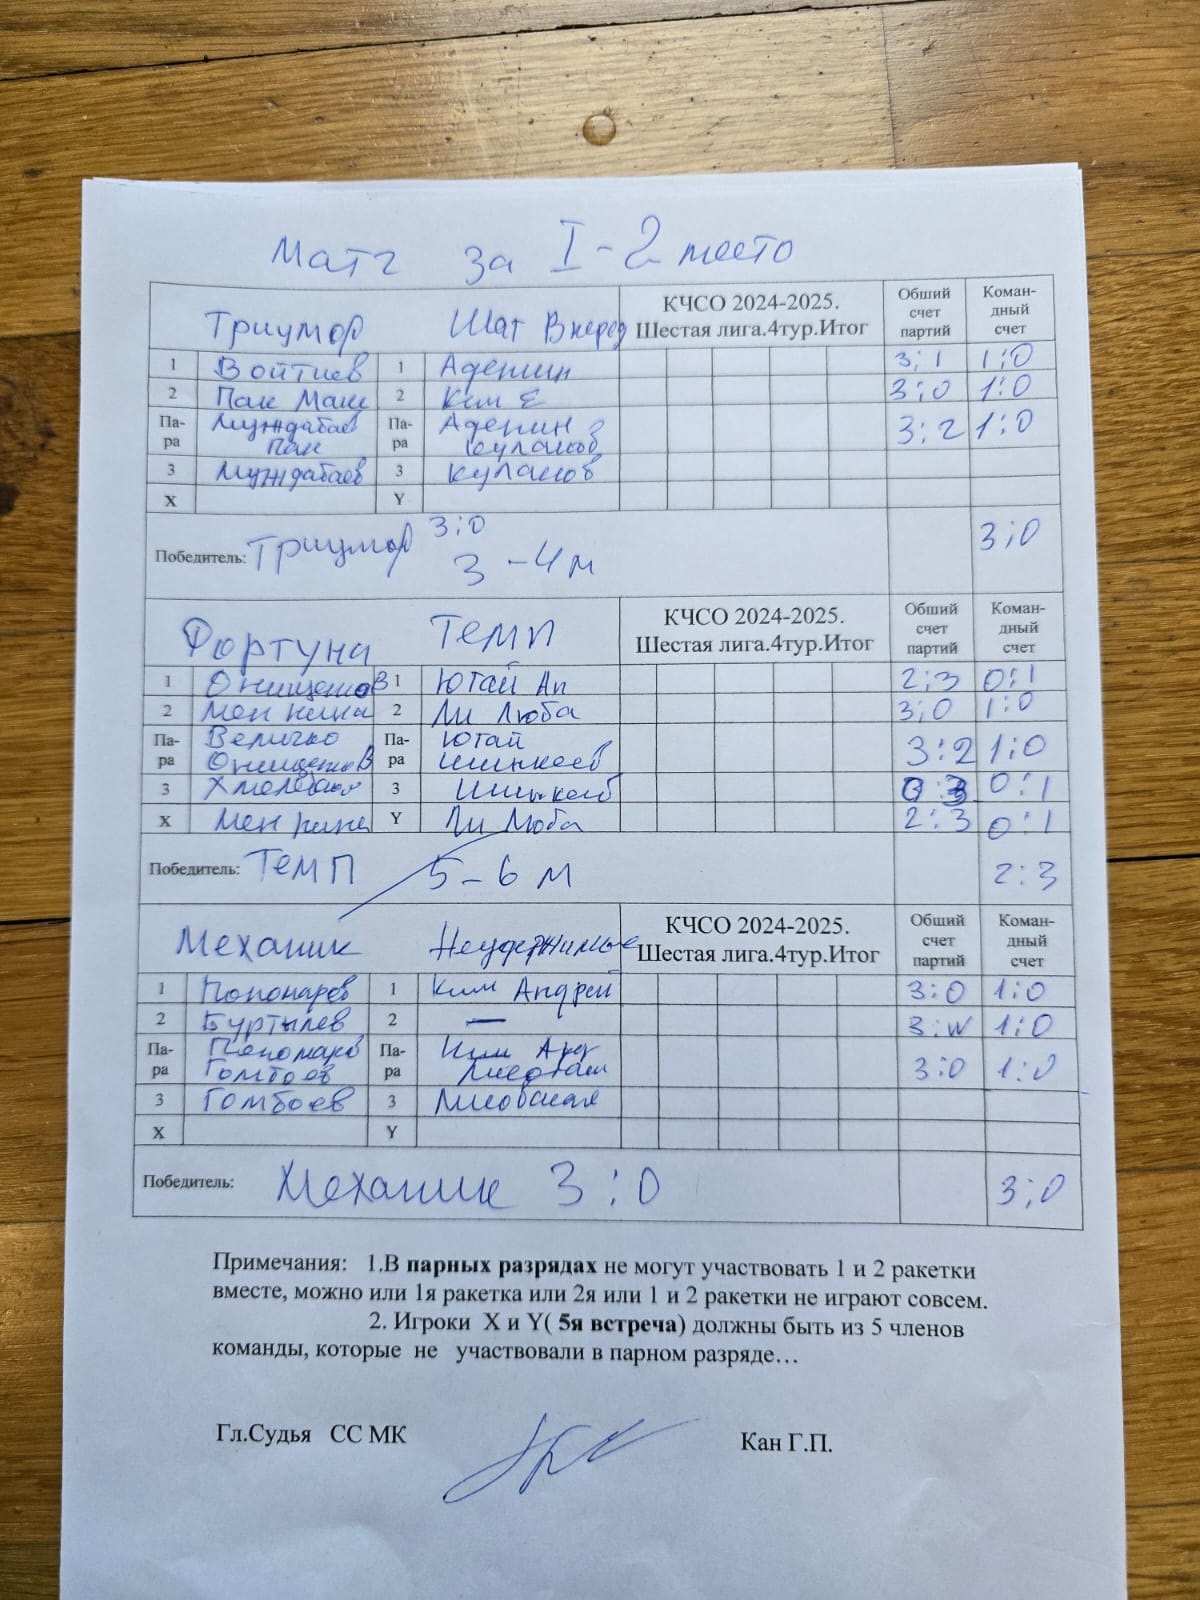 Матч за I-2 место
Триумф Шаг Вперед КЧСО 2024-2025. Шестая лига.4тур.Итог Обший счет партий Коман-дный счет
1 Войтиев 1 Адекин 3:1 1:0
2 Пак Макс 2 Ким Е 3:0 1:0
Па-ра Муждабаев Пак Па-ра Адекин Куланов 3:2 1:0
3 Муждабаев 3 Куланов
X Y
Победитель: Триумф 3:0 3:0
3-4 м
Фортуна Темп КЧСО 2024-2025. Шестая лига.4тур.Итог Обший счет партий Коман-дный счет
1 Онищенков 1 Югай Ап 2:3 0:1
2 2 Ли Люба 3:0 1:0
Па-ра Величко Онищенков Па-ра Югай 3:2 1:0
3 3 0:3 0:1
X Y Ли Люба 2:3 0:1
Победитель: Темп 2:3
5-6 м
Механик Неудержимые КЧСО 2024-2025. Шестая лига.4тур.Итог Обший счет партий Коман-дный счет
1 Пономарев 1 Ким Андрей 3:0 1:0
2 Буртылев 2 — 3:W 1:0
Па-ра Пономарев Гомбоев Па-ра Ким Анд 3:0 1:0
3 Гомбоев 3 Лисовская
X Y
Победитель: Механик 3:0 3:0
Примечания: 1.В парных разрядах не могут участвовать 1 и 2 ракетки
вместе, можно или 1я ракетка или 2я или 1 и 2 ракетки не играют совсем.
2. Игроки X и Y( 5я встреча) должны быть из 5 членов
команды, которые не участвовали в парном разряде…
Гл.Судья СС МК Кан Г.П.